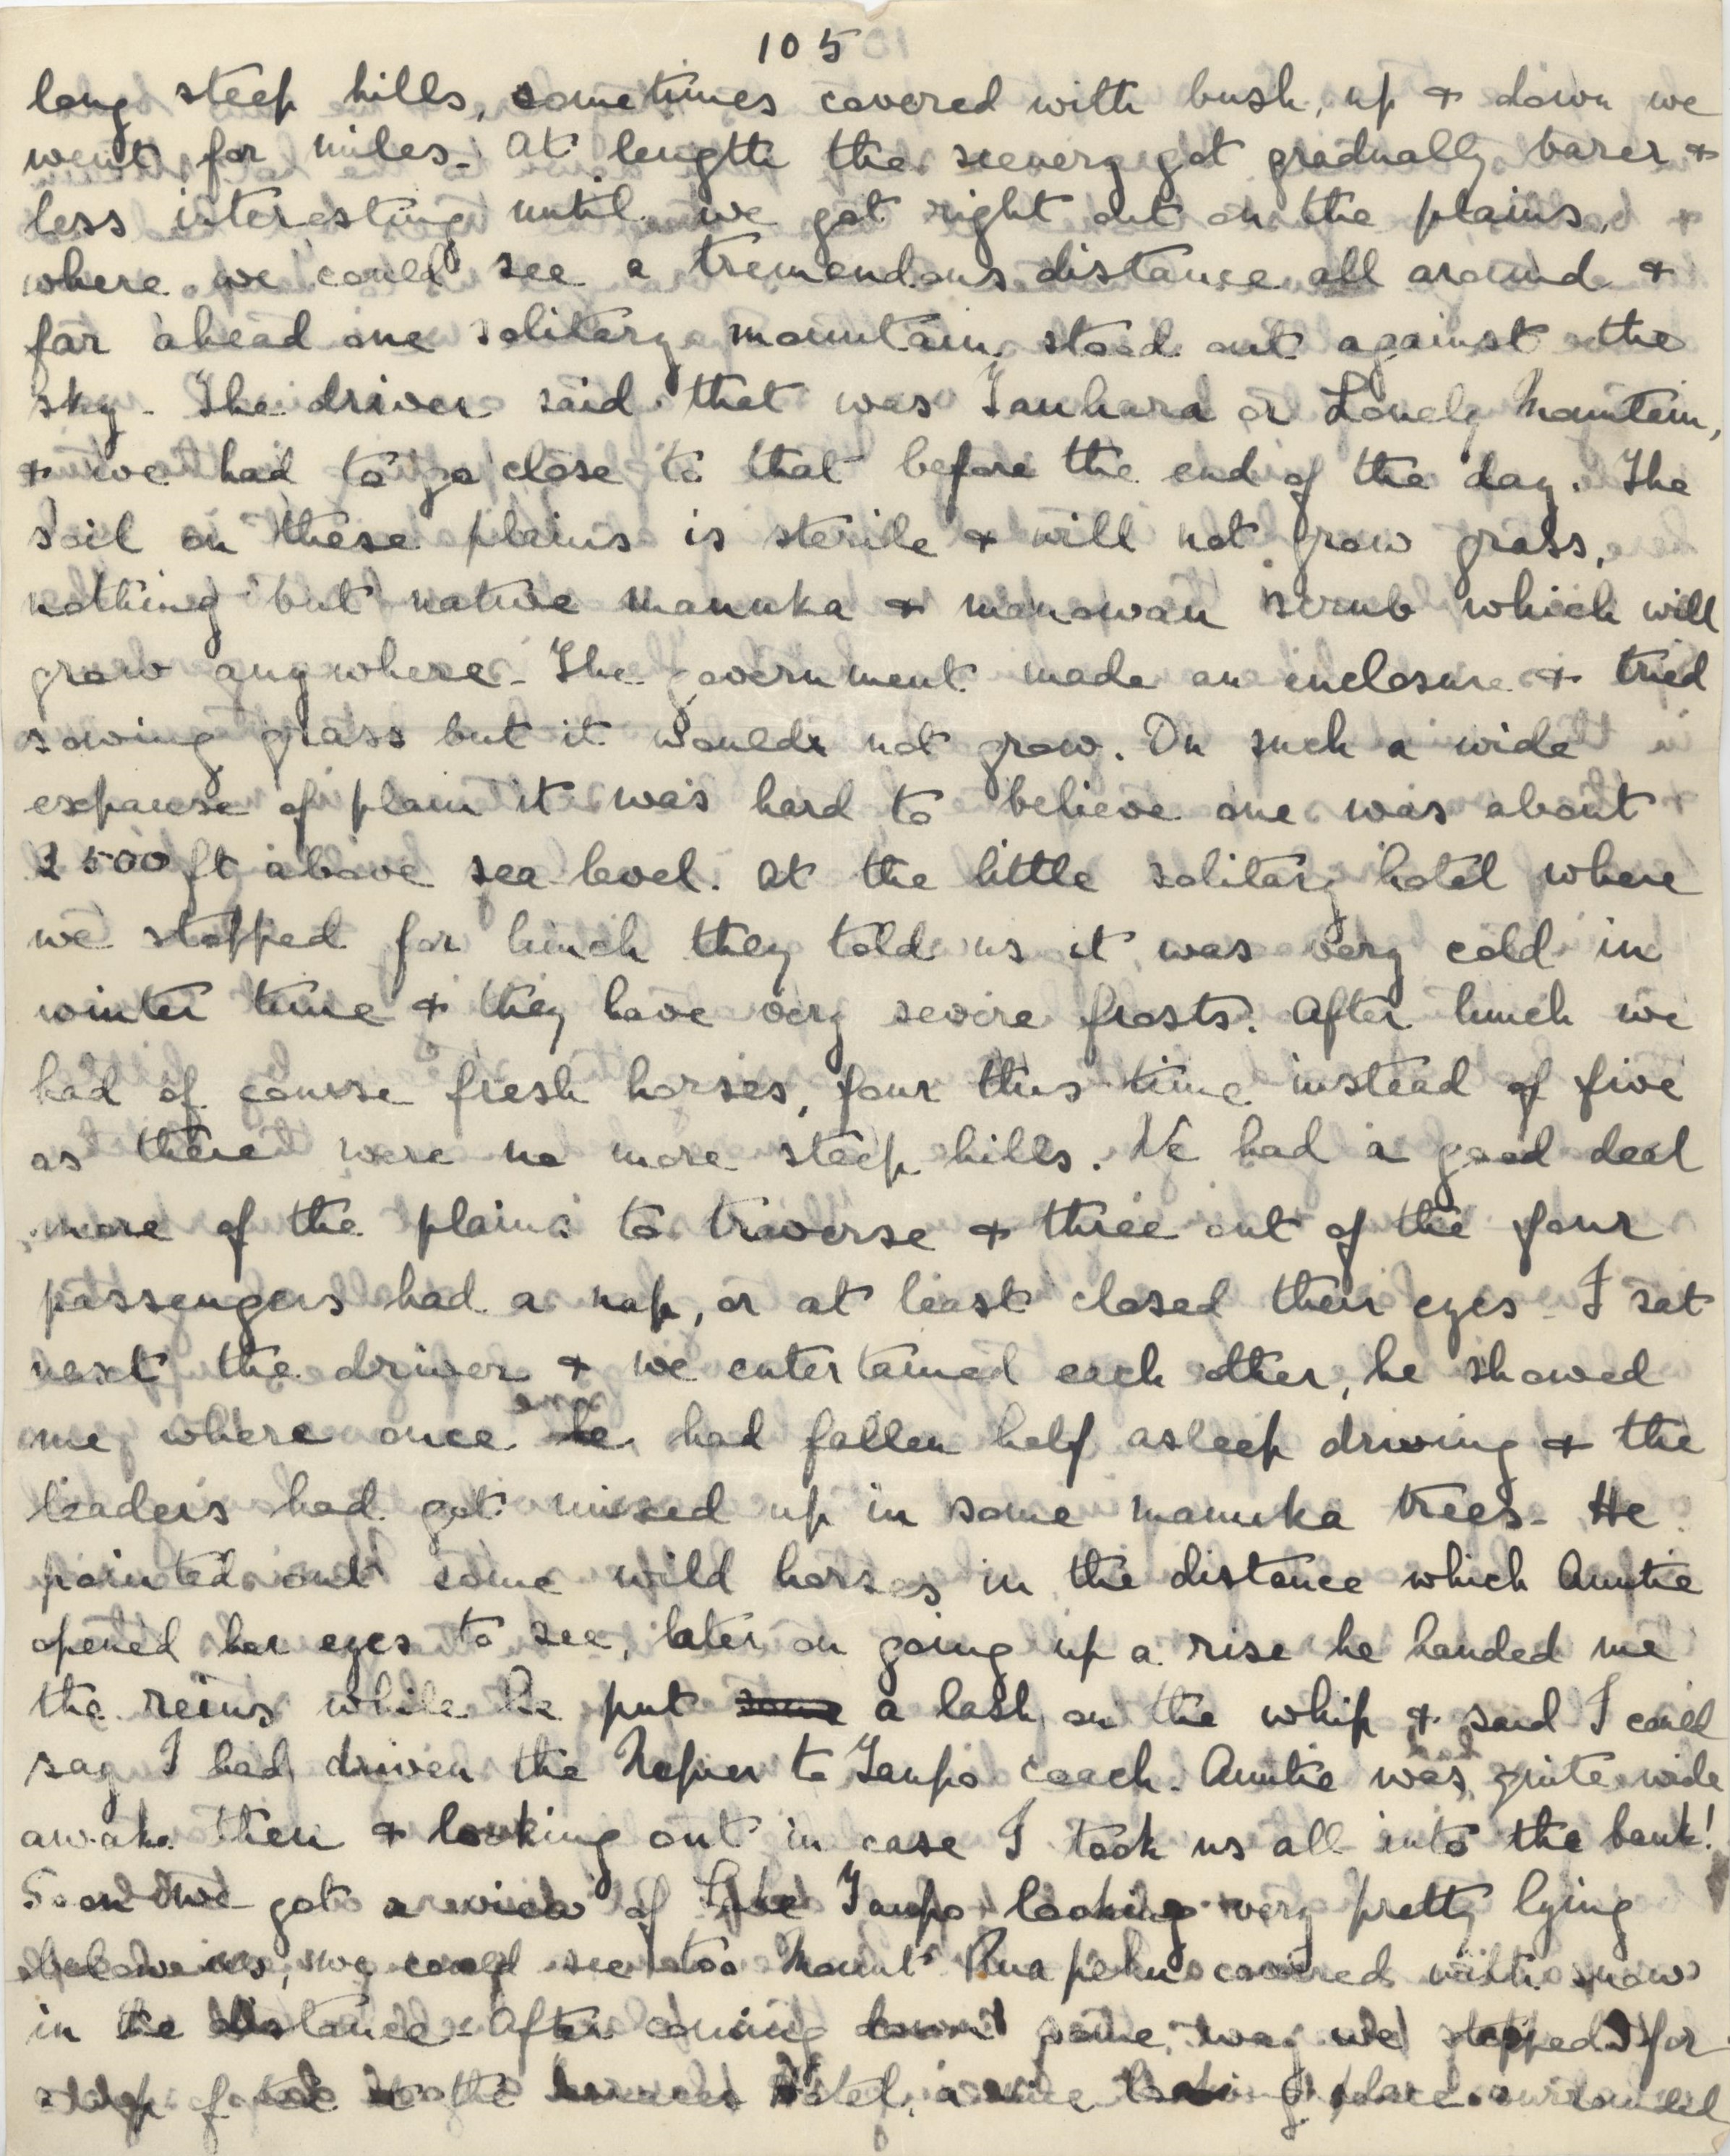 105
long steep hills, sometimes covered with bush, up & down we
went for miles. At length the scenery got gradually barer &
less interesting until we got right out on the plains,
where we could see a tremendous distance all around &
far ahead one solitary mountain stood out against the
sky. The driver said that was Tauhara or Lonely Mountain,
& we had to go close to that before the end of the day. The
soil on these plains is sterile & will not grow grass,
nothing but native manuka & monowau scrub which will
grow anywhere. The government made an enclosure & tried
sowing grass but it would not grow. On such a wide
expanse of plain it was hard to believe one was about
2500 ft above sea level. At the little solitary hotel where
we stopped for lunch they told us it was very cold in
winter time & they have very severe frosts. After lunch we
had of course fresh horses, four this time instead of five
as there were no more steep hills. We had a good deal
more of the plains to traverse & three out of the four
passengers had a nap, or at least closed their eyes. I sat
next the driver & we entertained each other, he showed
me where once he had fallen half asleep driving & the
leaders had got mixed up in some manuka trees. He
pointed out some wild horses in the distance which Auntie
opened her eyes to see, later on going up a rise he handed me
the reins while he put some a lash on the whip & said I could
say I had driven the Napier to Taupo coach. Auntie was quite wide
awake then & looking out in case I took us all into the bank!
Soon we got a view of Lake Taupo looking very pretty lying
below us, we could see too Mount Ruapehu covered with snow
in the distance. After coming down some way we stopped for
a cup of tea at the Terraces Hotel, a nice looking place surrounded